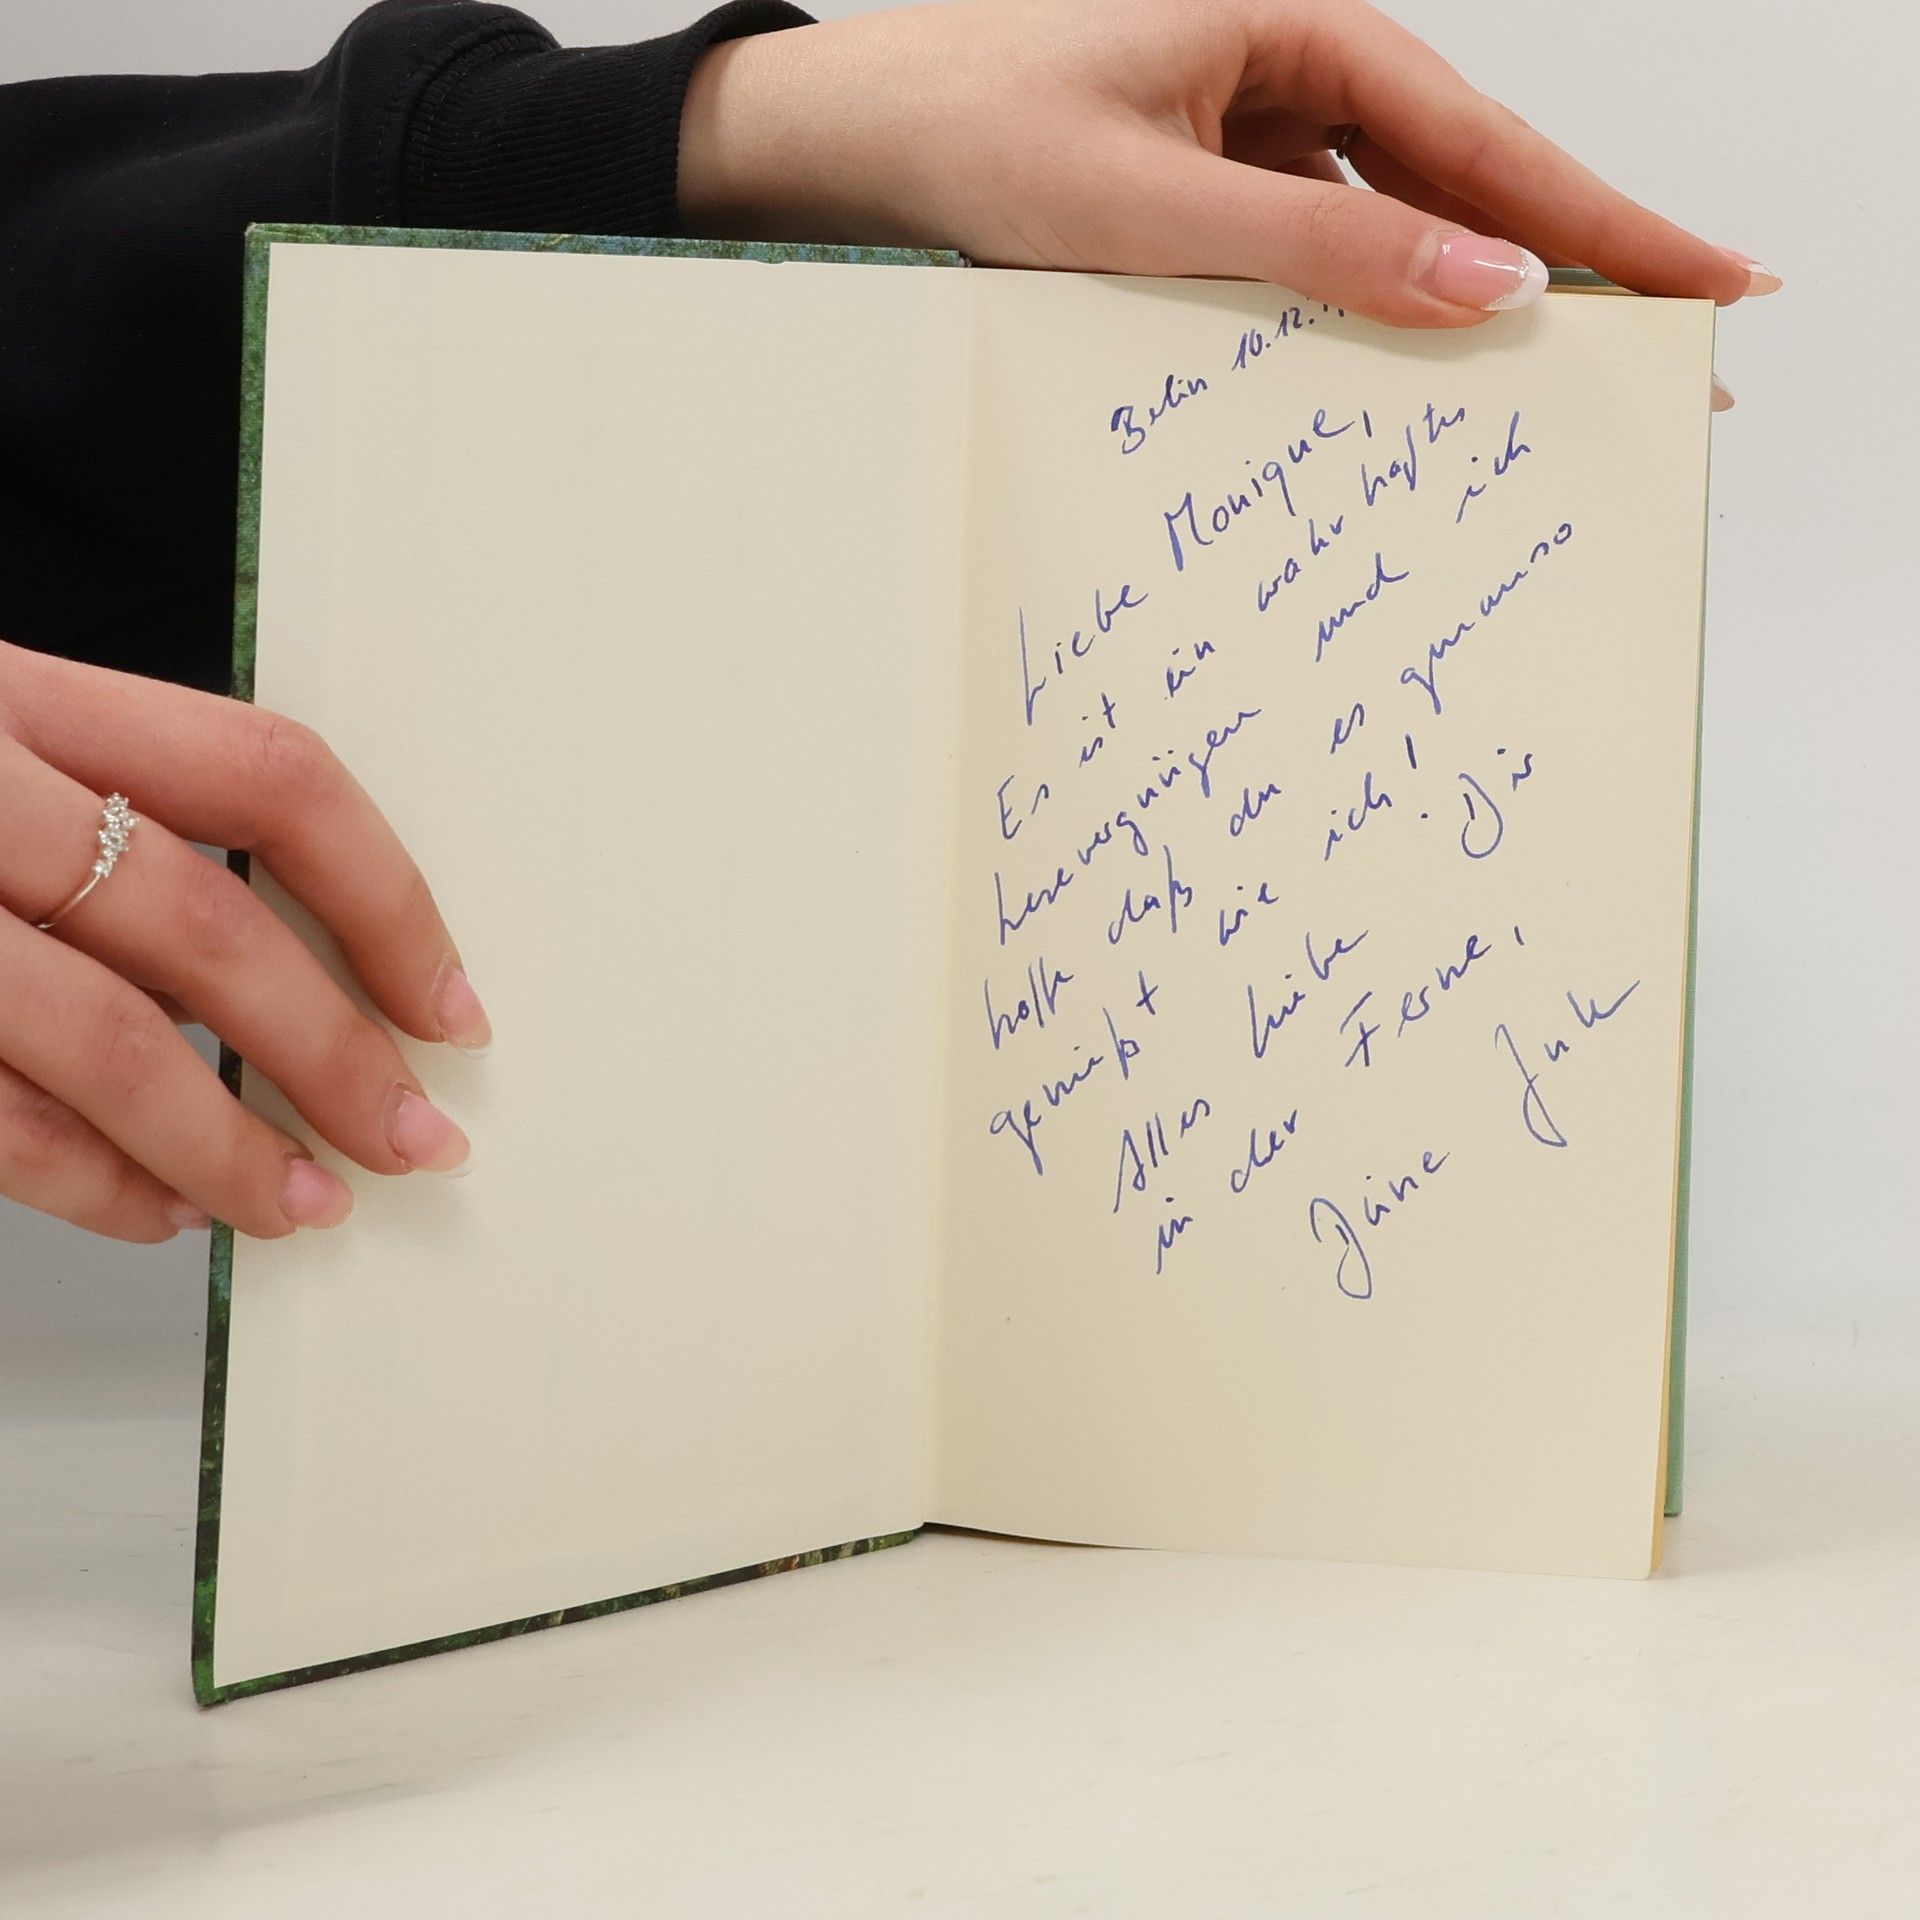 Berlin 10.12.
Liebe Monique,
Es ist ein wahrhaftes
Lesevergnügen und ich
hoffe daß du es genauso
genießt wie ich! Dir
Alles Liebe
in der Ferne,
Deine